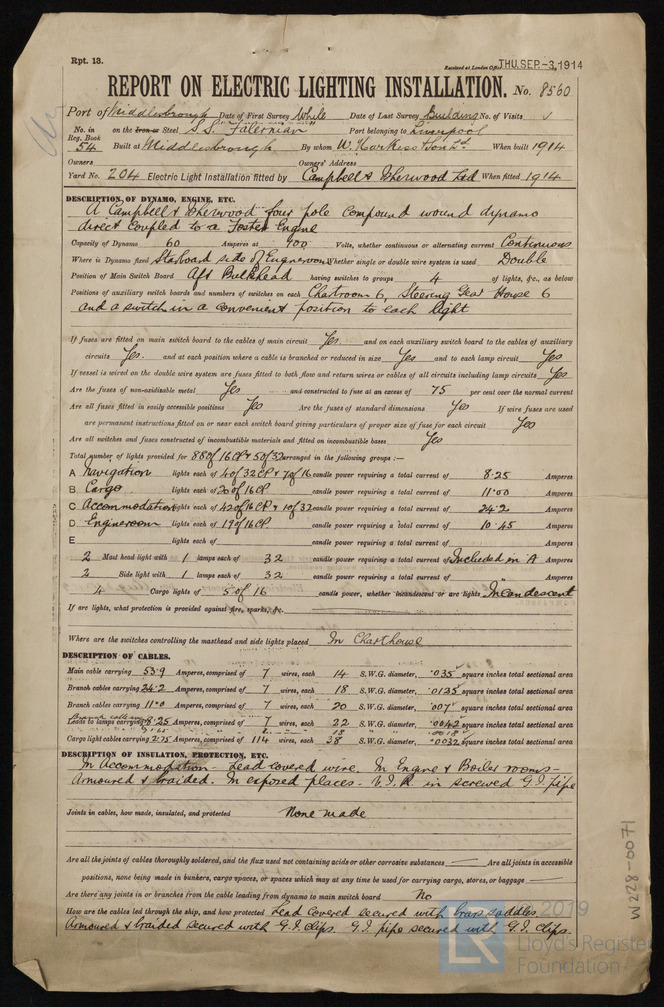 Rpt. 13.
Received at London Office THU. SEP. -3. 1914
REPORT ON ELECTRIC LIGHTING INSTALLATION. No. 8560
Port of Middlesbrough Date of First Survey While Date of Last Survey Building No. of Visits
No. in Reg. Book 54 on the Iron or Steel S.S. "Falernian" Port belonging to Liverpool
Built at Middlesbrough By whom W. Harkess & Son Ld. When built 1914
Owners Owners' Address
Yard No. 204 Electric Light Installation fitted by Campbell & Isherwood Ltd When fitted 1914
DESCRIPTION OF DYNAMO, ENGINE, ETC.
A Campbell & Isherwood four pole compound wound dynamo
direct coupled to a Foster Engine
Capacity of Dynamo 60 Amperes at 100 Volts, whether continuous or alternating current Continuous
Where is Dynamo fixed Starboard side of Engineroom Whether single or double wire system is used Double
Position of Main Switch Board Aft Bulkhead having switches to groups 4 of lights, &c., as below
Positions of auxiliary switch boards and numbers of switches on each Chartroom 6, Steering Gear House 6
and a switch in a convenient position to each light
If fuses are fitted on main switch board to the cables of main circuit Yes and on each auxiliary switch board to the cables of auxiliary
circuits Yes. and at each position where a cable is branched or reduced in size Yes and to each lamp circuit Yes
If vessel is wired on the double wire system are fuses fitted to both flow and return wires or cables of all circuits including lamp circuits Yes
Are the fuses of non-oxidizable metal Yes and constructed to fuse at an excess of 75 per cent over the normal current
Are all fuses fitted in easily accessible positions Yes Are the fuses of standard dimensions Yes If wire fuses are used
are permanent instructions fitted on or near each switch board giving particulars of proper size of fuse for each circuit Yes
Are all switches and fuses constructed of incombustible materials and fitted on incombustible bases Yes
Total number of lights provided for 88 of 16 CP & 5 of 32 arranged in the following groups :—
A Navigation lights each of 4 of 32 CP & 7 of 16 candle power requiring a total current of 8.25 Amperes
B Cargo lights each of 20 of 16 CP candle power requiring a total current of 11.00 Amperes
C Accommodation lights each of 42 of 16 CP & 1 of 32 candle power requiring a total current of 24.2 Amperes
D Engineroom lights each of 19 of 16 CP. candle power requiring a total current of 10.45 Amperes
E lights each of candle power requiring a total current of Amperes
2 Mast head light with 1 lamps each of 32 candle power requiring a total current of Included in A Amperes
2 Side light with 1 lamps each of 32 candle power requiring a total current of " Amperes
4 Cargo lights of 5 of 16 candle power, whether incandescent or arc lights Incandescent
If arc lights, what protection is provided against fire, sparks, &c.
Where are the switches controlling the masthead and side lights placed In Charthouse
DESCRIPTION OF CABLES.
Main cable carrying 53.9 Amperes, comprised of 7 wires, each 14 S.W.G. diameter, .035 square inches total sectional area
Branch cables carrying 24.2 Amperes, comprised of 7 wires, each 18 S.W.G. diameter, .0125 square inches total sectional area
Branch cables carrying 11.0 Amperes, comprised of 7 wires, each 20 S.W.G. diameter, .007 square inches total sectional area
Leads to lamps carrying 8.25 Amperes, comprised of 7 wires, each 22 S.W.G. diameter, .0042 square inches total sectional area
18 .0018
Cargo light cables carrying 2.75 Amperes, comprised of 114 wires, each 38 S.W.G. diameter, .0032 square inches total sectional area
DESCRIPTION OF INSULATION, PROTECTION, ETC.
In Accommodation - Lead covered wire. In Engine & Boiler rooms -
Armoured & braided. In exposed places - V.I.R. in screwed G.I. pipe
Joints in cables, how made, insulated, and protected None made
Are all the joints of cables thoroughly soldered, and the flux used not containing acids or other corrosive substances — Are all joints in accessible
positions, none being made in bunkers, cargo spaces, or spaces which may at any time be used for carrying cargo, stores, or baggage —
Are there any joints in or branches from the cable leading from dynamo to main switch board No
How are the cables led through the ship, and how protected Lead covered secured with brass saddles
Armoured & braided secured with G.I. clips. G.I. pipe secured with G.I. clips.
W228-0071
2019
LR
Lloyd's Register
Foundation